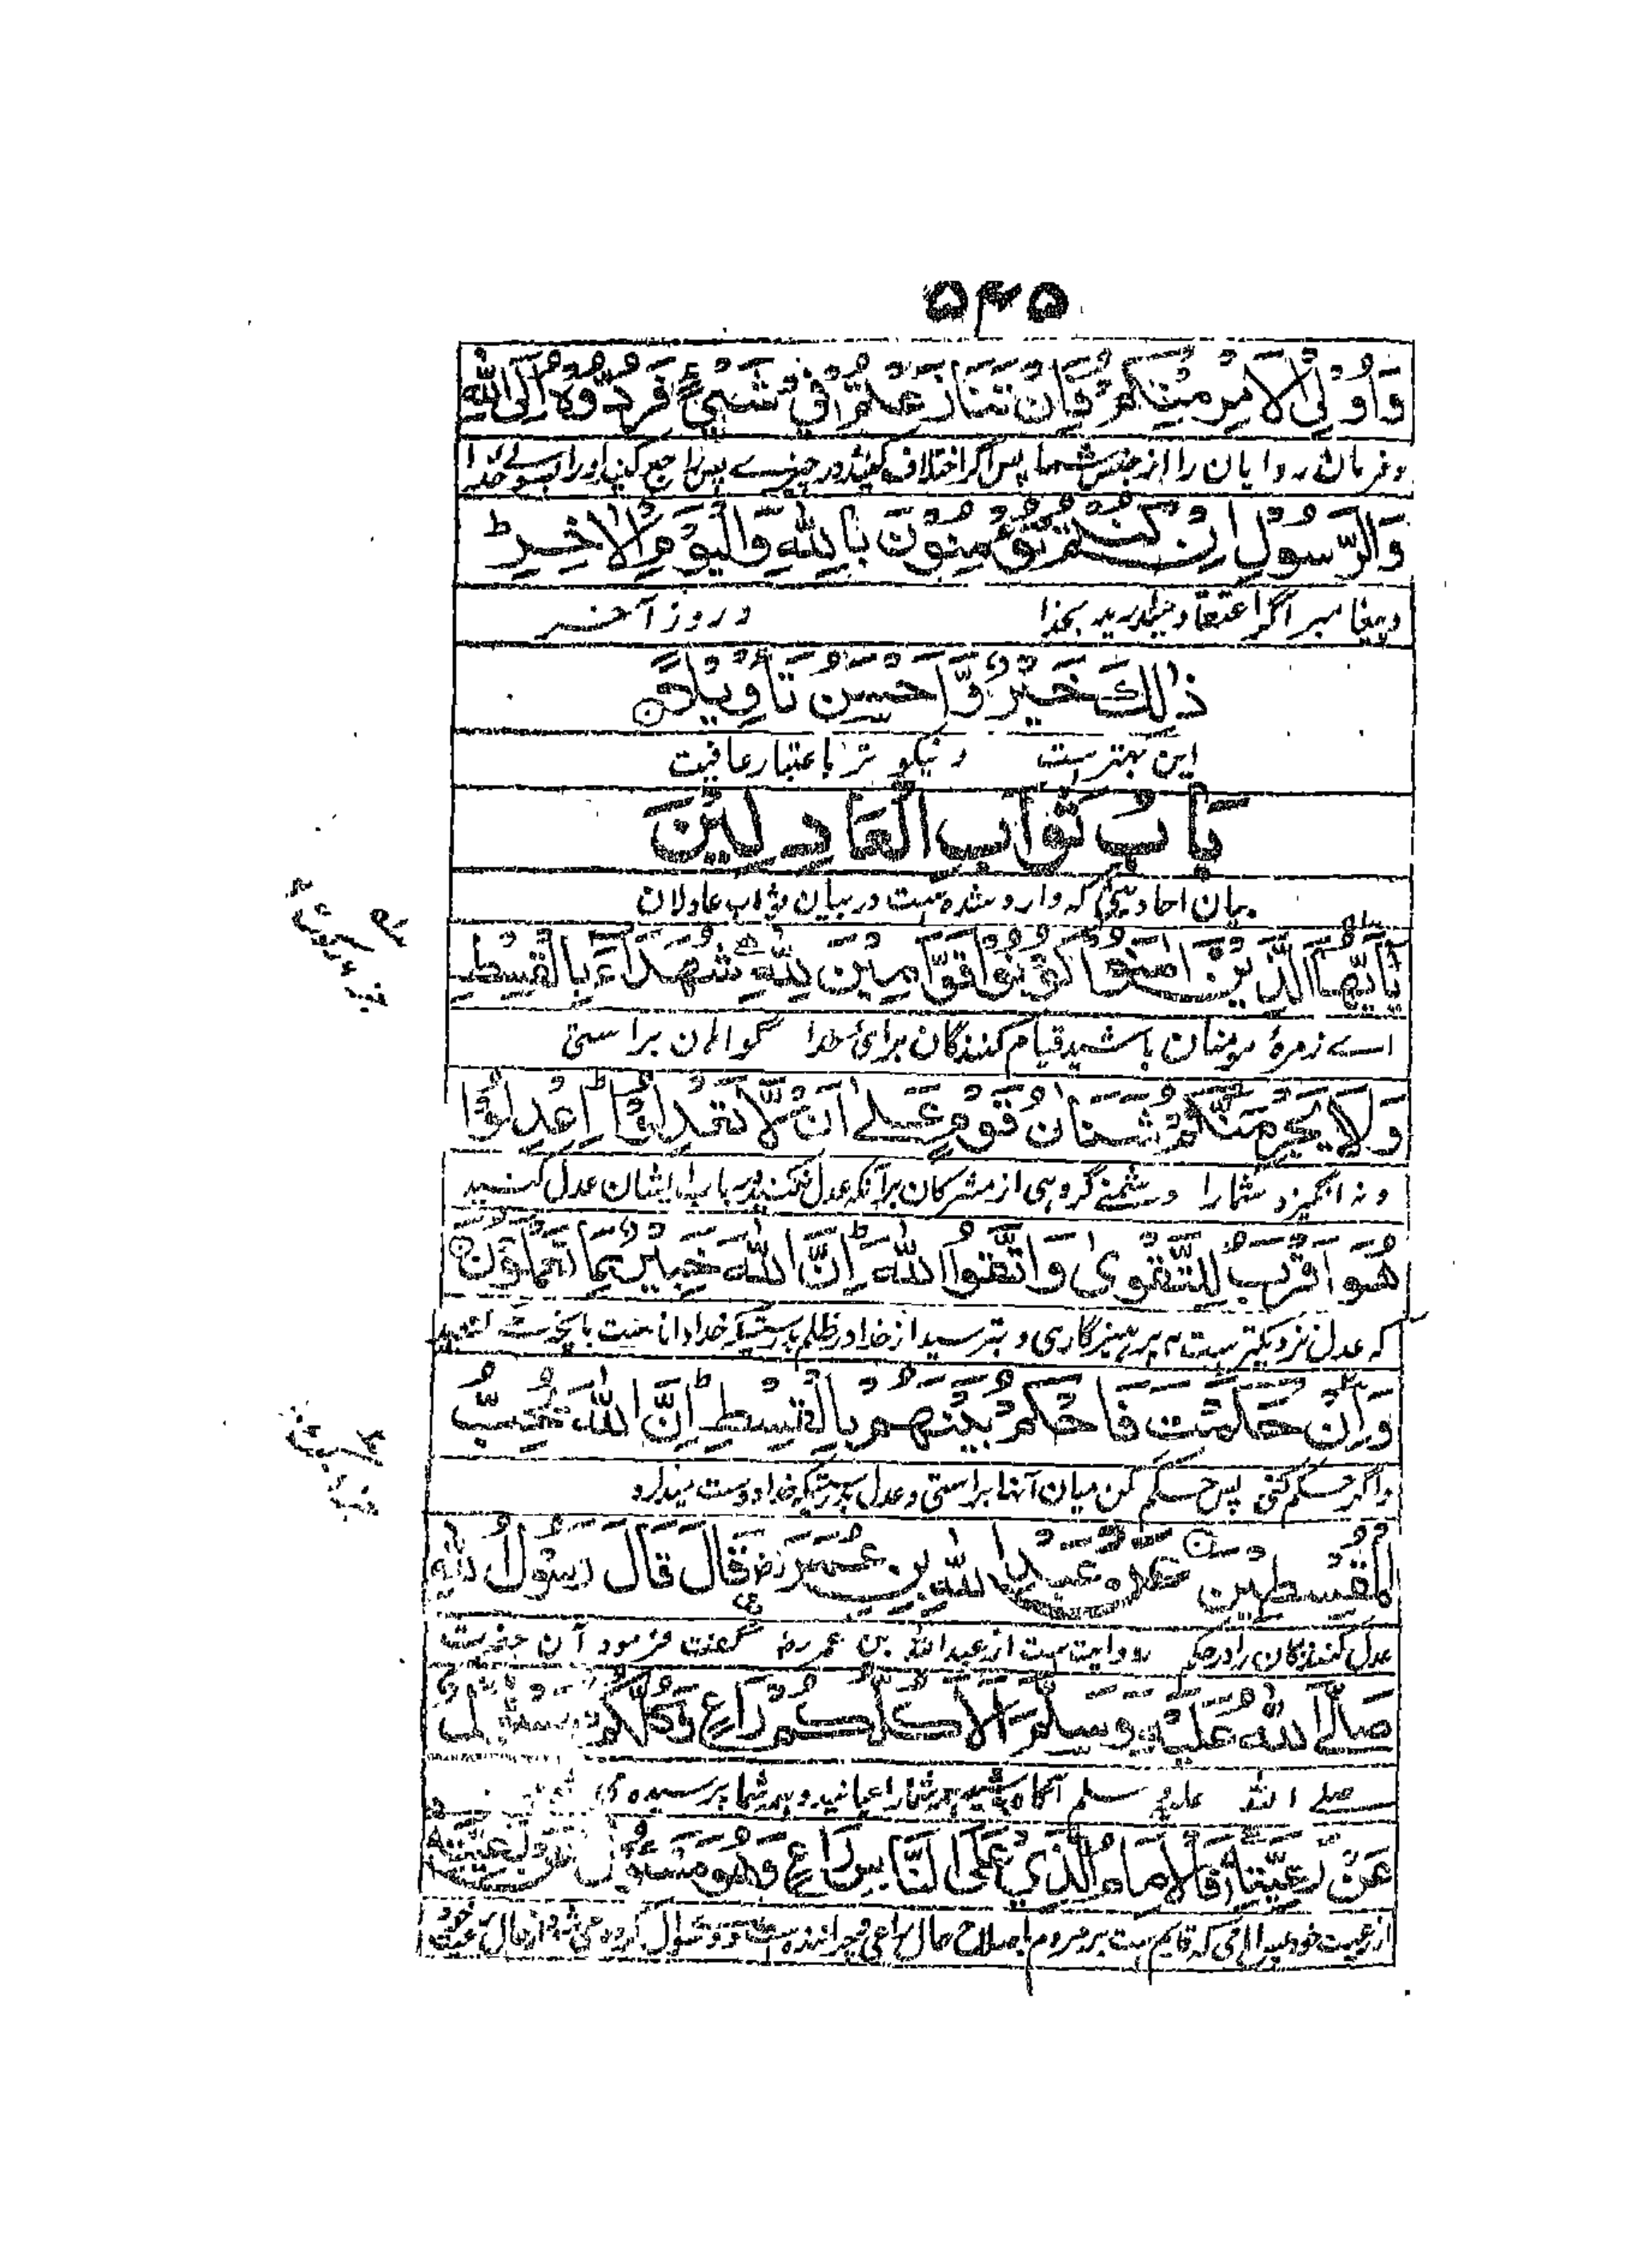 ۵۴۵
وَاُولِی الْاَمْرِ مِنْكُمْ فَاِنْ تَنَازَعْتُمْ فِیْ شَیْءٍ فَرُدُّوْهُ اِلَی اللّٰهِ
و فرمان روایان را از جنس شما پس اگر اختلاف کنید در چیزے پس راجع کنید اورا بسوے خدا
وَالرَّسُوْلِ اِنْ كُنْتُمْ تُؤْمِنُوْنَ بِاللّٰهِ وَالْیَوْمِ الْاٰخِرِ ط
و پیغامبر اگر اعتقاد میدارید بخدا و روز آخر
ذٰلِكَ خَیْرٌ وَّاَحْسَنُ تَأْوِیْلًا
این بهترست و نیکو تر باعتبار عاقبت
بَابُ ثَوَابِ الْعَادِلِیْنَ
بیان احادیثی که وارد شده است در بیان ثواب عادلان
یٰاَیُّهَا الَّذِیْنَ اٰمَنُوْا كُوْنُوْا قَوَّامِیْنَ لِلّٰهِ شُهَدَآءَ بِالْقِسْطِ
اے زمرهٔ مومنان باشید قیام کنندگان برای خدا گواهان براستی
وَلَا یَجْرِمَنَّكُمْ شَنَاٰنُ قَوْمٍ عَلٰی اَنْ لَّا تَعْدِلُوْا ط اِعْدِلُوْا
و نه انگیزد شما را دشمنے گروهی از مشرکان برآنکه عدل نکنید در باب ایشان عدل کنید
هُوَ اَقْرَبُ لِلتَّقْوٰی وَاتَّقُوا اللّٰهَ ط اِنَّ اللّٰهَ خَبِیْرٌ بِمَا تَعْمَلُوْنَ
که عدل نزدیکتر ست به پرهیزگاری و بترسید از خدا در ظلم بدرستیکه خدا دانا است بانچه
وَاِنْ حَكَمْتَ فَاحْكُمْ بَیْنَهُمْ بِالْقِسْطِ ط اِنَّ اللّٰهَ یُحِبُّ
و اگر حکم کنی پس حکم کن میان آنها براستی و عدل بدرستیکه خدا دوست میدارد
الْمُقْسِطِیْنَ عَنْ عَبْدِ اللّٰهِ بْنِ عُمَرَ رض قَالَ قَالَ رَسُوْلُ اللّٰهِ
عدل کنندگان را در حکم روایت ست از عبد الله بن عمر رض گفت فرمود آن حضرت
صَلَّی اللّٰهُ عَلَیْهِ وَسَلَّمَ اَلَا كُلُّكُمْ رَاعٍ وَكُلُّكُمْ مَسْئُوْلٌ
صلے الله علیه و سلم آگاه باشید همه شما راعیانید و همه شما پرسیده می
عَنْ رَعِیَّتِهٖ فَالْاِمَامُ الَّذِیْ عَلَی النَّاسِ رَاعٍ وَهُوَ مَسْئُوْلٌ عَنْ رَعِیَّتِهٖ
از رعیت خود که قایم ست بر مردم باصلاح حال راعی و چراننده ست و سوال کرده می شود از حال رعیت خود